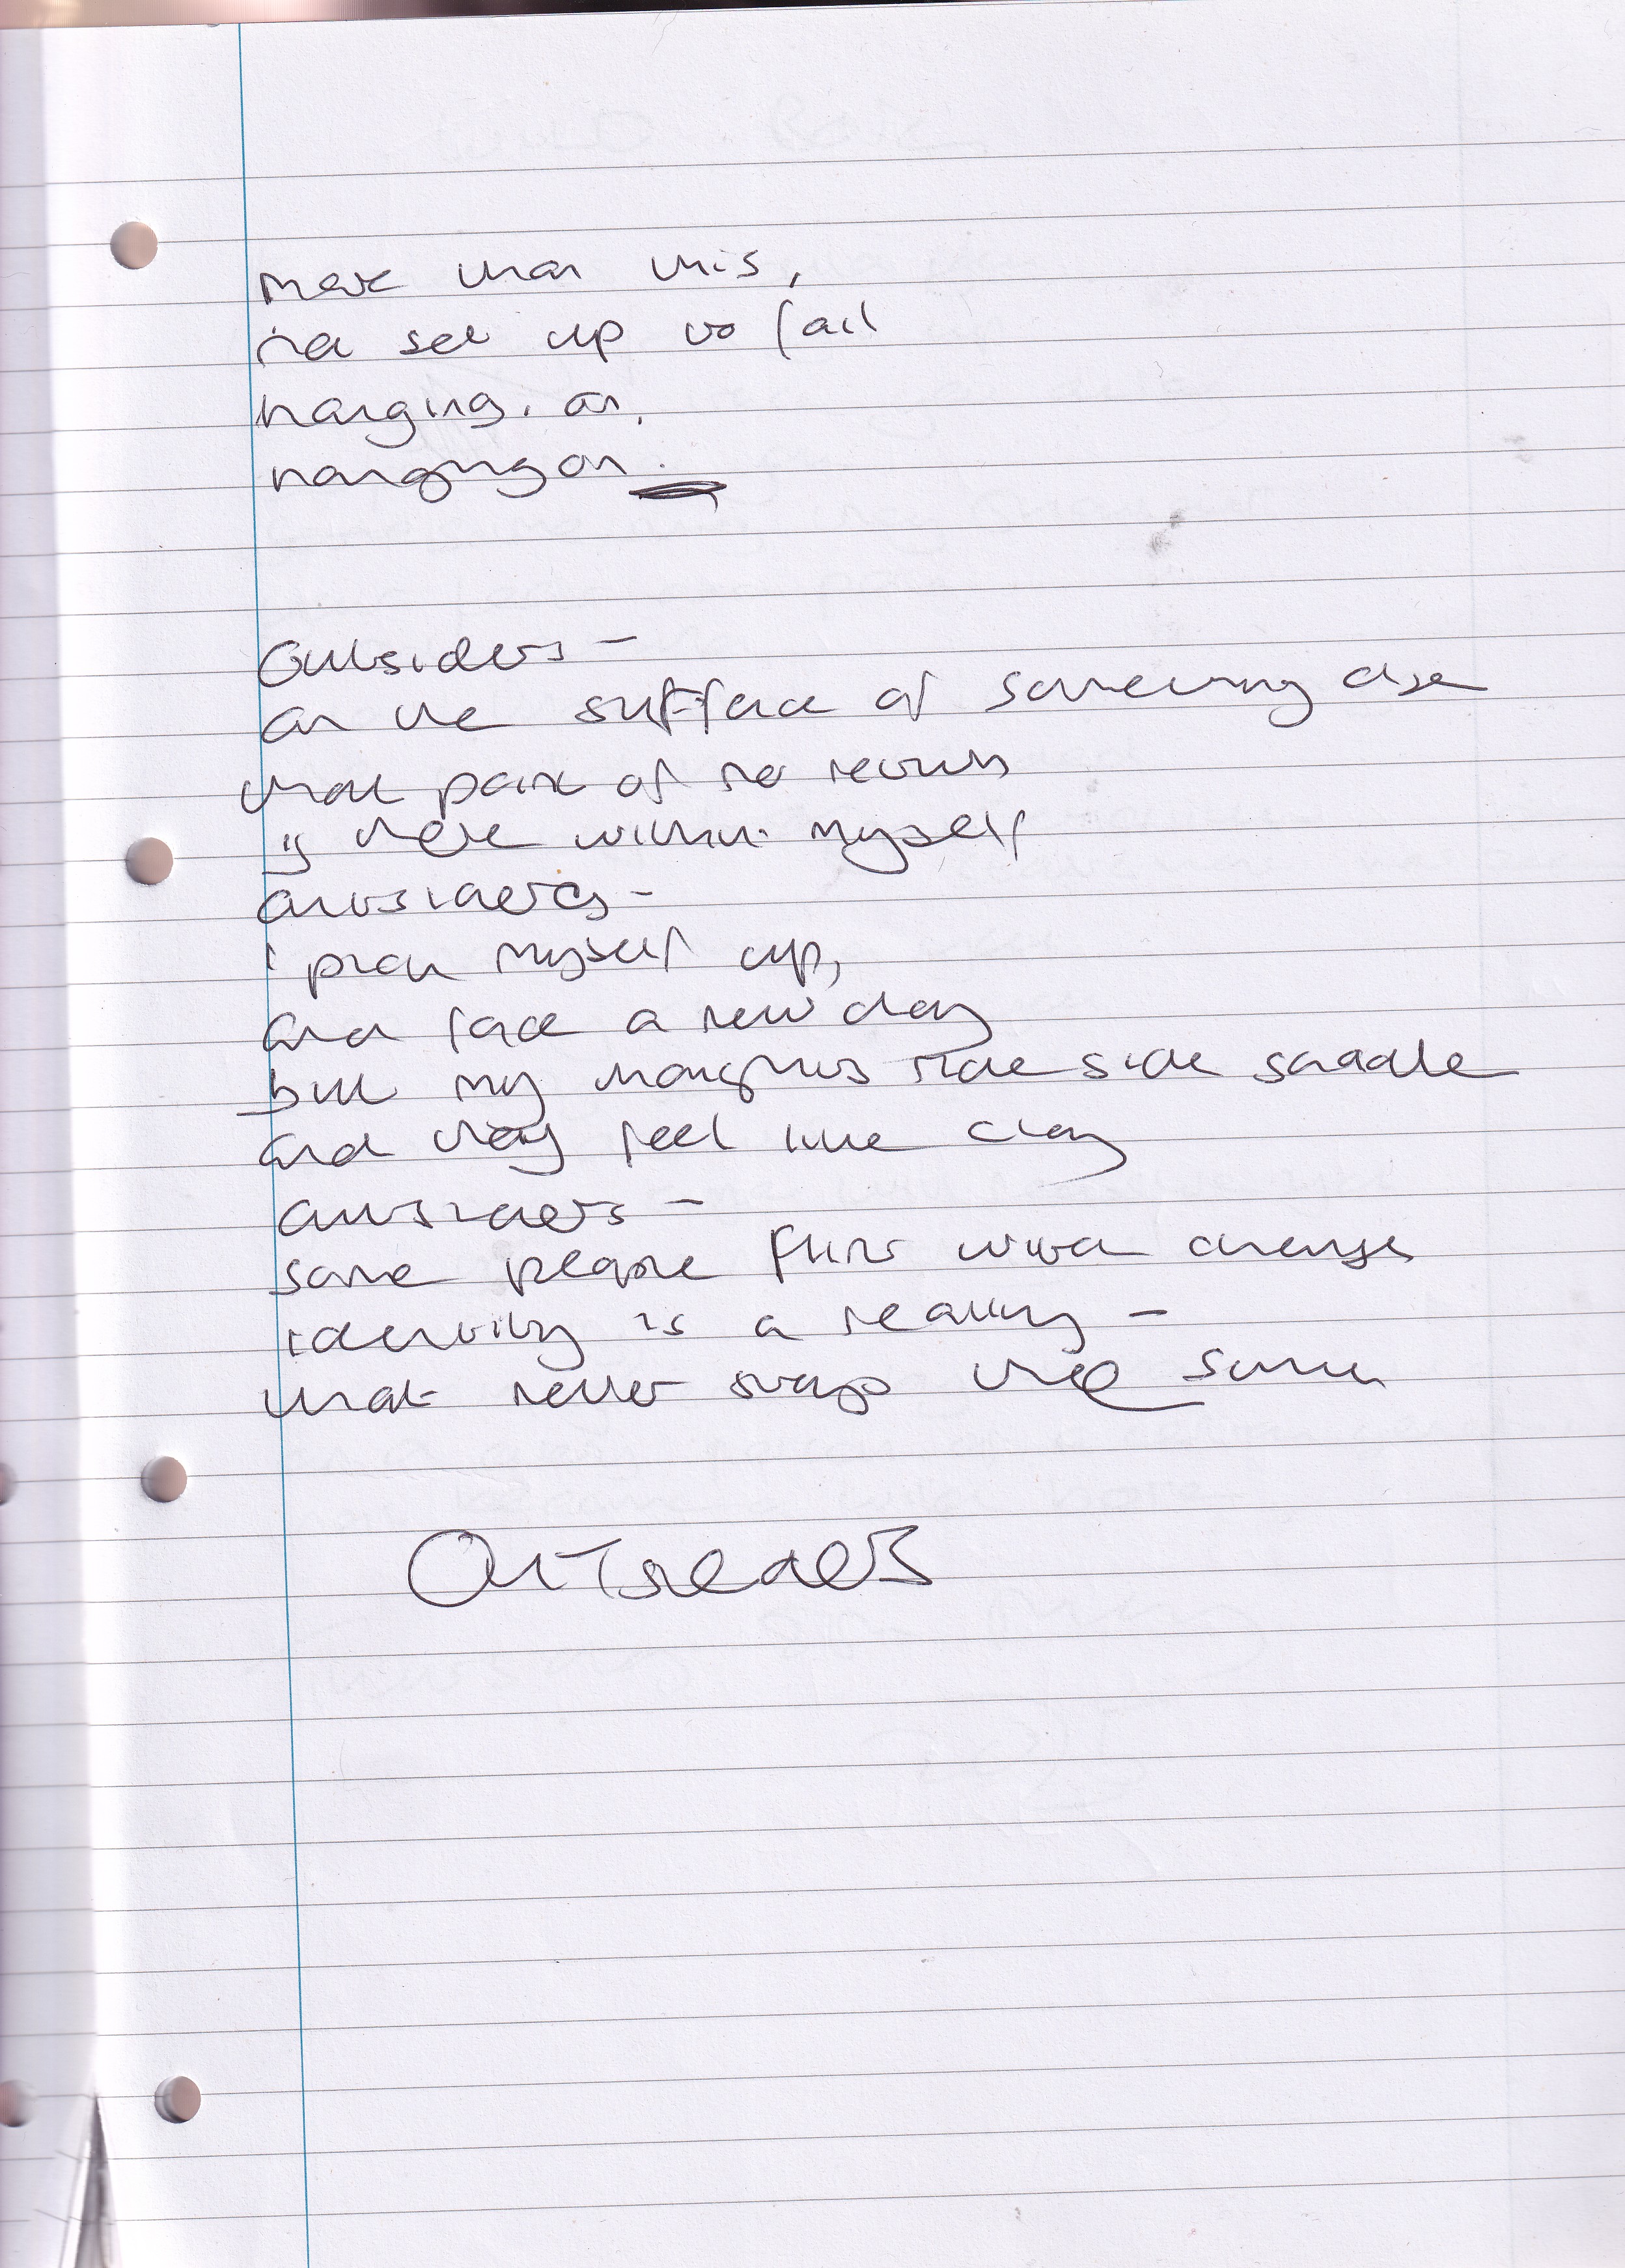 more than this,
not set up to fail
hanging. on,
hanging on.
Outsiders -
on the surface of something else
that point of no return
is there within myself
outsiders -
i pick myself up,
and face a new day
but my thoughts ride side saddle
and they feel like clay
outsiders -
some people flirt with change
identity is a reality -
that never stays the same
Outsiders